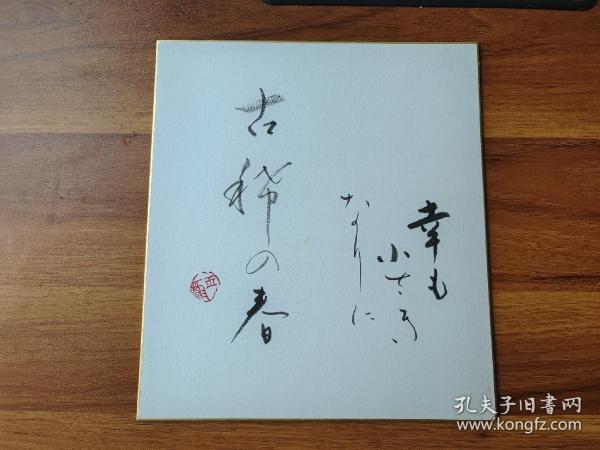 幸も
小さき
なりに
古稀の春
孔夫子旧书网
www.kongfz.com